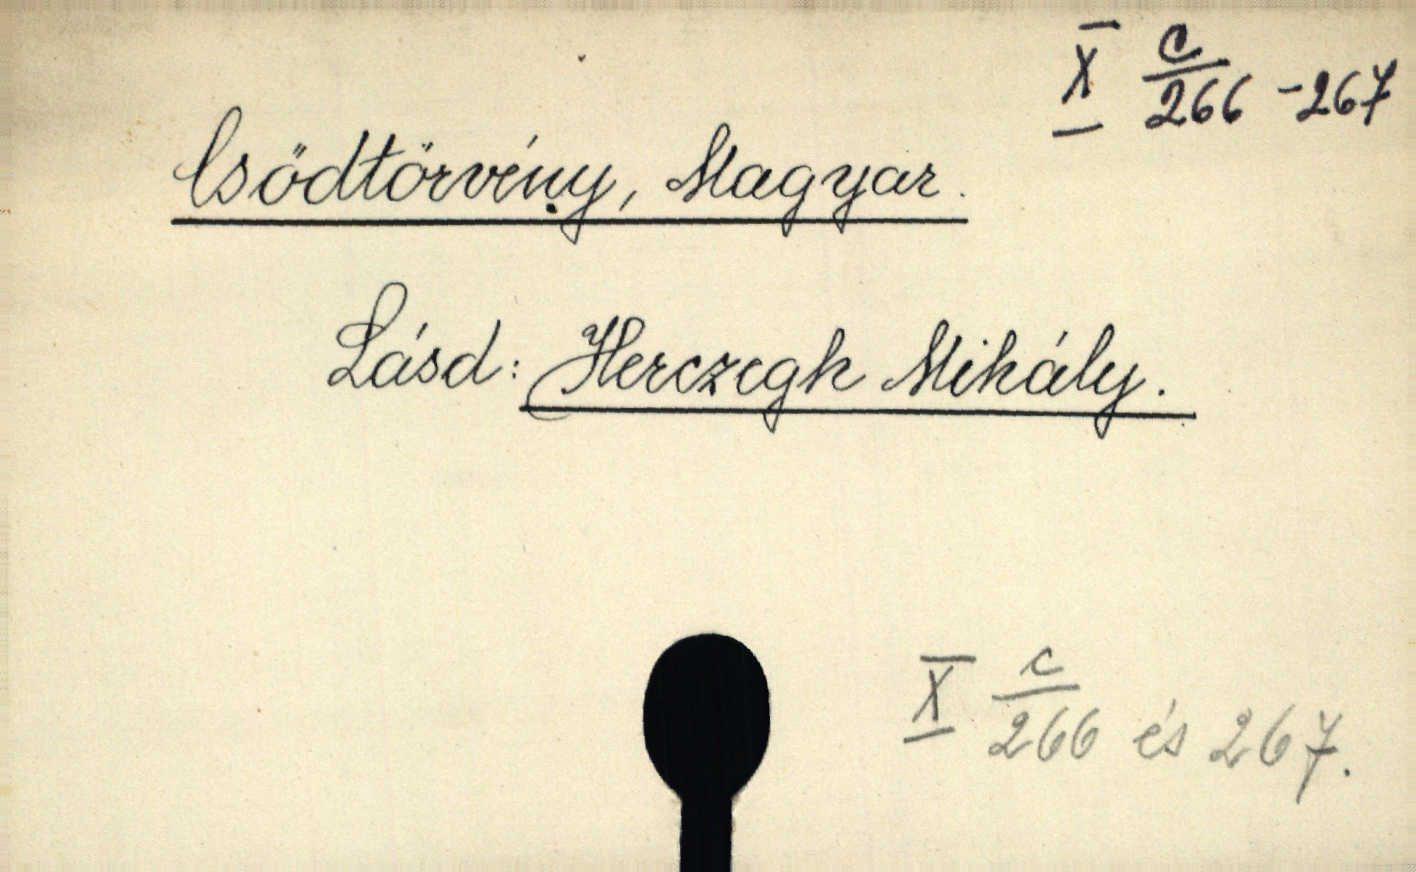 X c/266-267
Csödtörvény, Magyar.
Lásd: Herczegh Mihály.
X c/266 és 267.